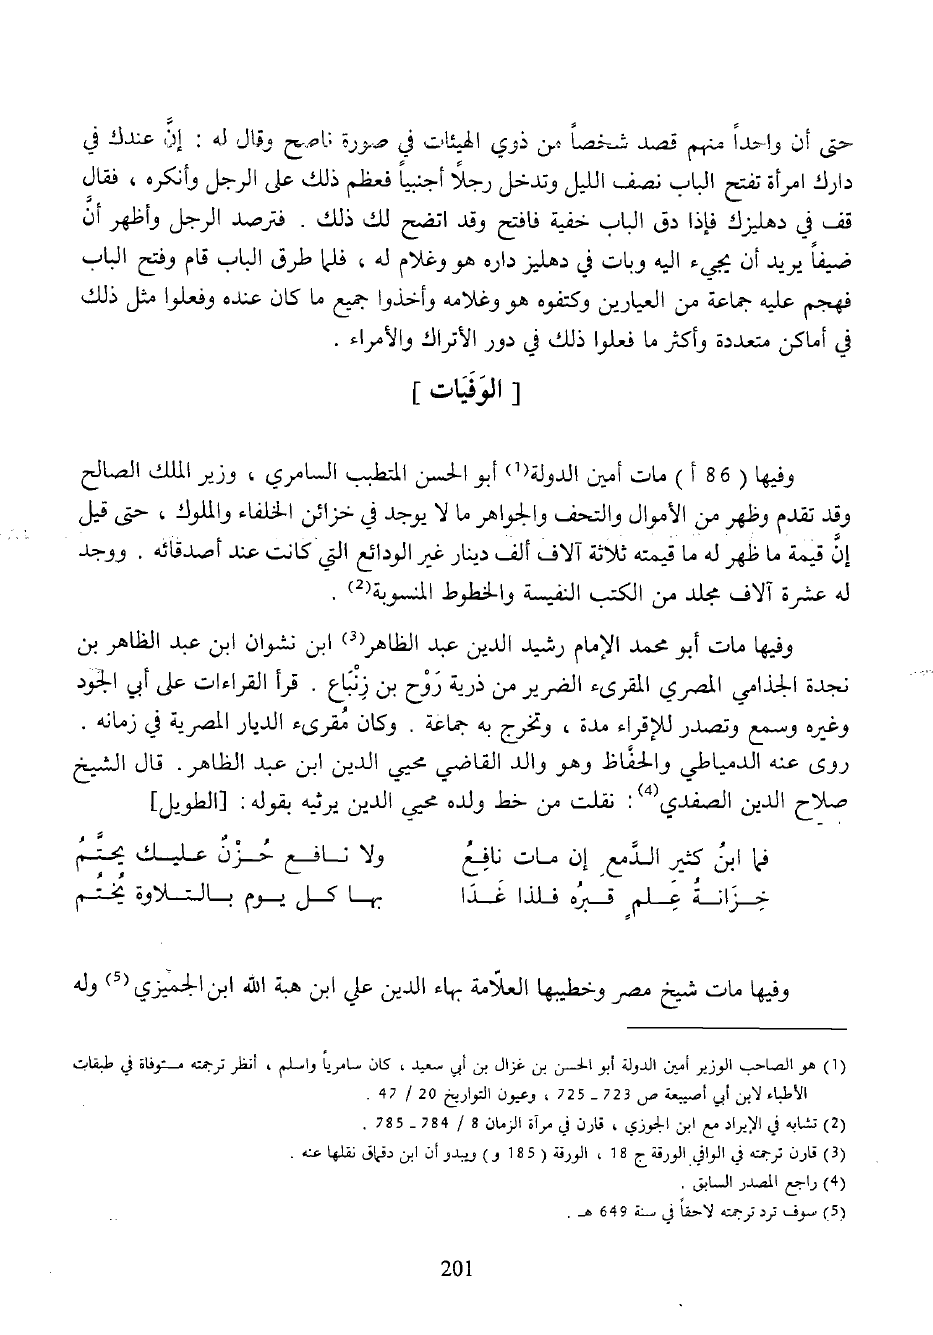 حتى أن واحداً منهم قصد شخصاً من ذوي الهيئات في صورة ناصح وقال له : إنَّ عندك في
دارك امرأة تفتح الباب نصف الليل وتدخل رجلاً أجنبياً فعظم ذلك على الرجل وأنكره ، فقال
قف في دهليزك فإذا دق الباب خفية فافتح وقد اتضح لك ذلك . فترصد الرجل وأظهر أنَّ
ضيفاً يريد أن يجيء اليه وبات في دهليز داره هو وغلام له ، فلما طرق الباب قام وفتح الباب
فهجم عليه جماعة من العيارين وكتفوه هو وغلامه وأخذوا جميع ما كان عنده وفعلوا مثل ذلك
في أماكن متعددة وأكثر ما فعلوا ذلك في دور الأتراك والأمراء .
[ الوَفَيَات ]
وفيها ( 86 أ ) مات أمين الدولة(1) أبو الحسن المتطبب السامري ، وزير الملك الصالح
وقد تقدم وظهر من الأموال والتحف والجواهر ما لا يوجد في خزائن الخلفاء والملوك ، حتى قيل
إنَّ قيمة ما ظهر له ما قيمته ثلاثة آلاف ألف دينار غير الودائع التي كانت عند أصدقائه . ووجد
له عشرة آلاف مجلد من الكتب النفيسة والخطوط المنسوبة(2) .
وفيها مات أبو محمد الإمام رشيد الدين عبد الظاهر(3) ابن نشوان ابن عبد الظاهر بن
نجدة الجذامي المصري المقرىء الضرير من ذرية رَوْح بن زِنْبَاع . قرأ القراءات على أبي الجود
وغيره وسمع وتصدر للإقراء مدة ، وتخرج به جماعة . وكان مُقرىء الديار المصرية في زمانه .
روى عنه الدمياطي والحفَّاظ وهو والد القاضي محيي الدين ابن عبد الظاهر . قال الشيخ
صلاح الدين الصفدي(4) : نقلت من خط ولده محيي الدين يرثيه بقوله : [الطويل]
فما ابنُ كثير الدَّمع إن مات نافِعُ ولا نافع حُزْنٌ عليك يحتَّمُ
خِزَانةُ عِلمٍ قبرُه فلذا غَدَا بها كل يوم بالتلاوة يُختُم
وفيها مات شيخ مصر وخطيبها العلاّمة بهاء الدين علي ابن هبة الله ابن الجميزي (5) وله
(1) هو الصاحب الوزير أمين الدولة أبو الحسن بن غزال بن أبي سعيد ، كان سامرياً واسلم ، أنظر ترجمته مستوفاة في طبقات
الأطباء لابن أبي أصيبعة ص 723 - 725 ، وعيون التواريخ 20 / 47 .
(2) تشابه في الإيراد مع ابن الجوزي ، قارن في مرآة الزمان 8 / 784 - 785 .
(3) قارن ترجمته في الوافي الورقة ج 18 ، الورقة ( 185 و ) ويبدو أن ابن دقماق نقلها عنه .
(4) راجع المصدر السابق .
(5) سوف ترد ترجمته لاحقاً في سنة 649 هـ .
201